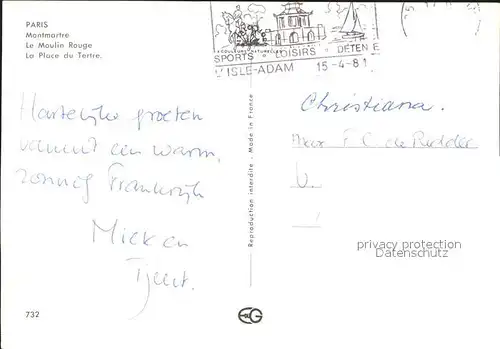 PARIS
Montmartre
Le Moulin Rouge
La Place du Tertre.
SPORTS • LOISIRS • DETENTE
L'ISLE-ADAM 15-4-81
Hartelijke groeten
vanuit een warm,
zonnig Frankrijk
Miek en
Tjeert.
Reproduction interdite - Made in France
Christiana.
F C de Ridder
privacy protection
Datenschutz
732